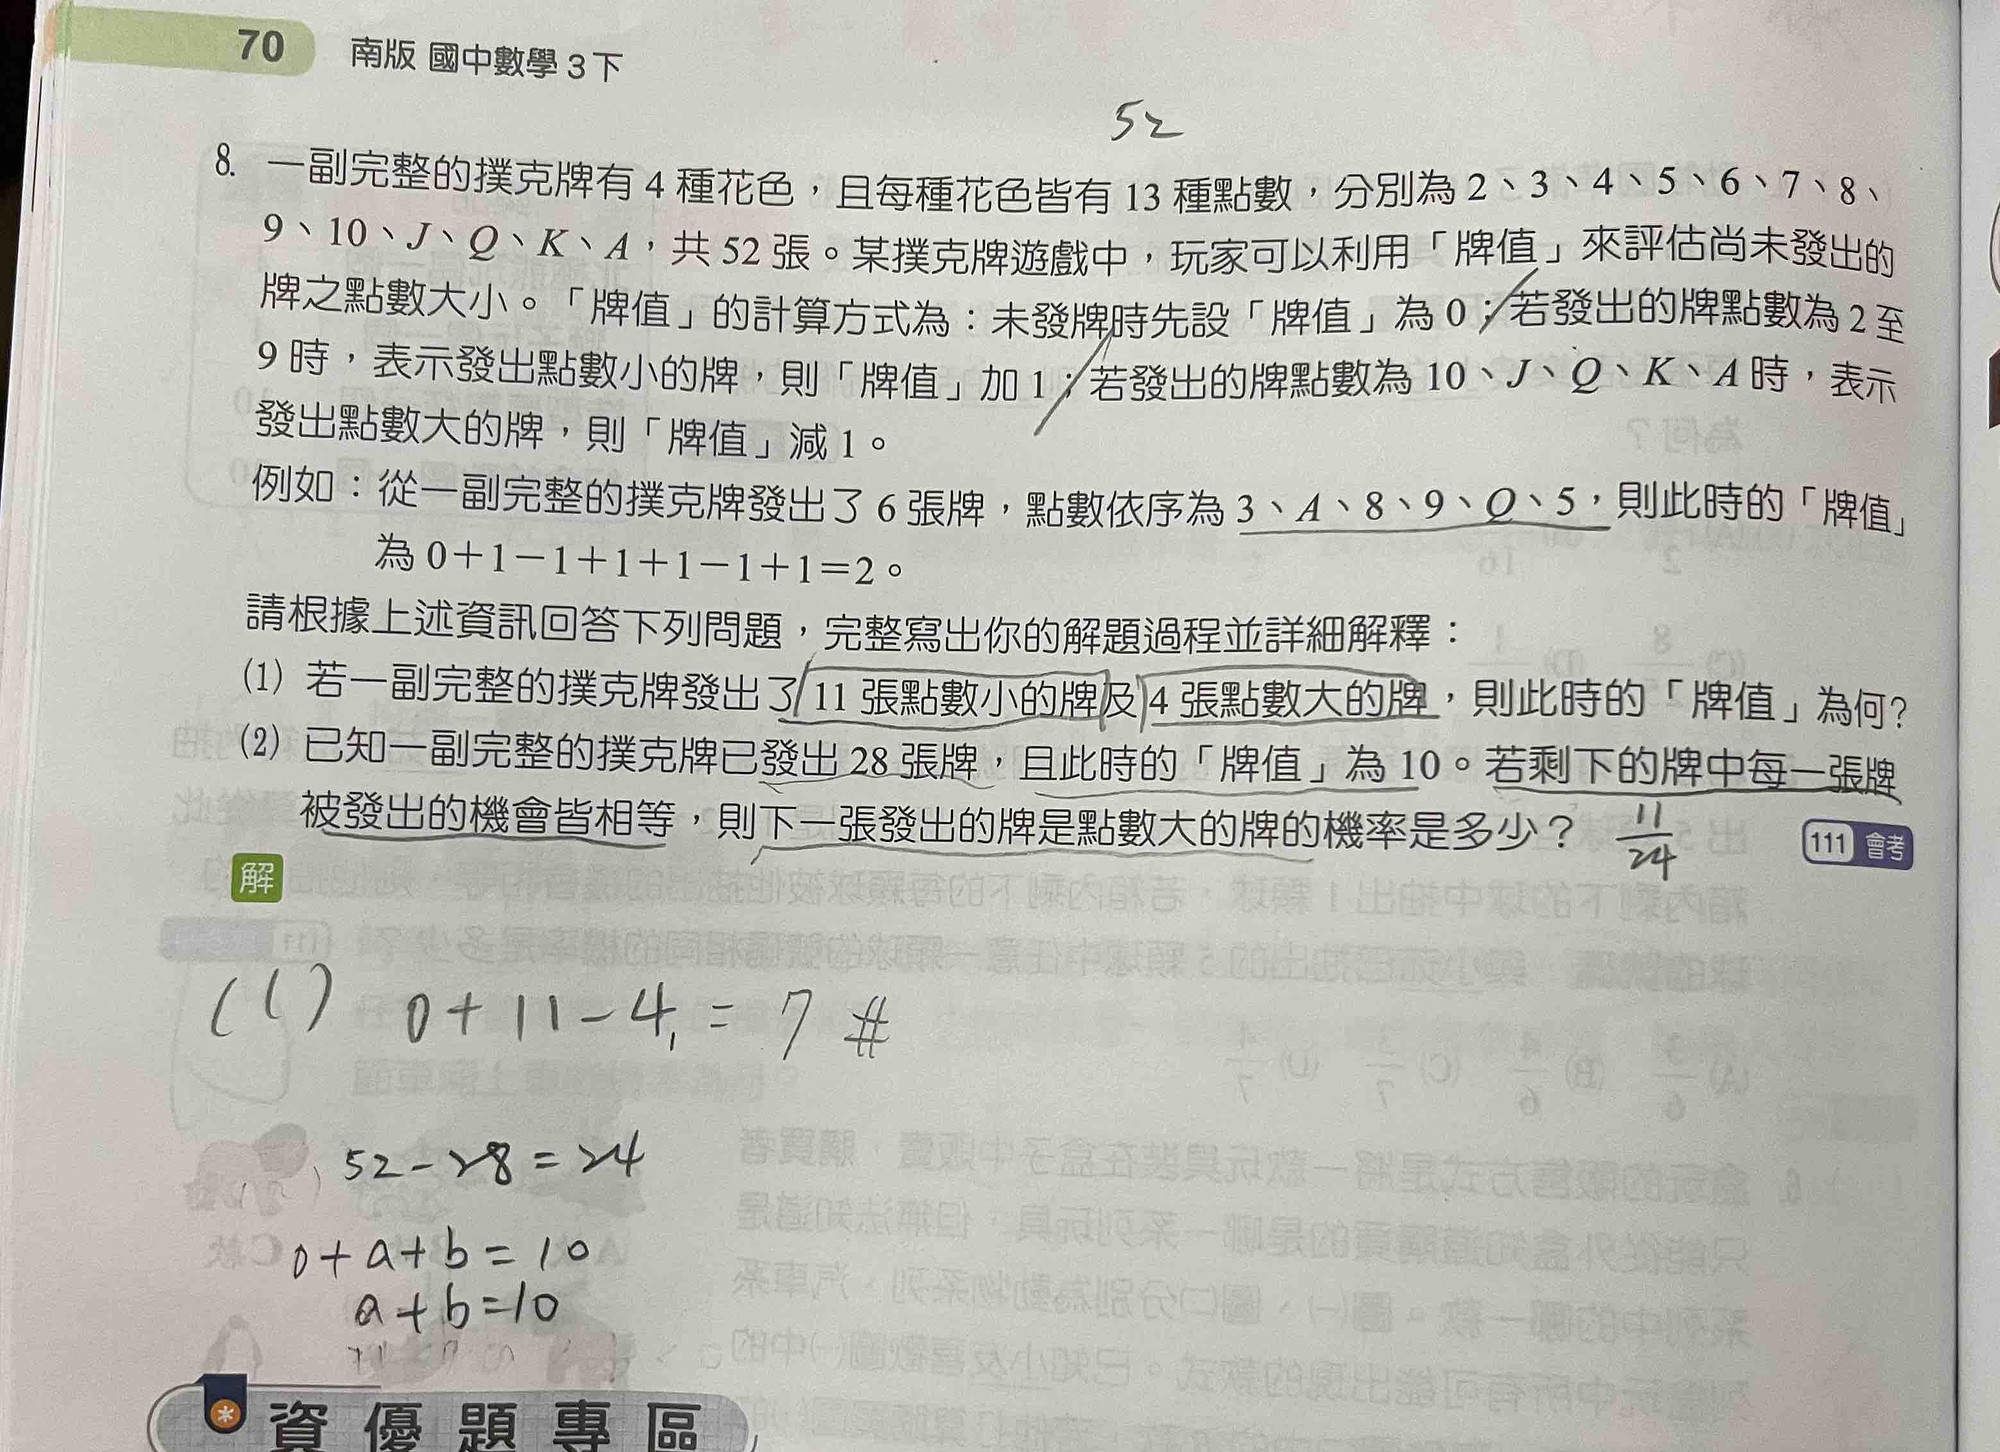 70 南版 國中數學3下
52
8. 一副完整的撲克牌有4種花色，且每種花色皆有13種點數，分別為2、3、4、5、6、7、8、
9、10、J、Q、K、A，共52張。某撲克牌遊戲中，玩家可以利用「牌值」來評估尚未發出的
牌之點數大小。「牌值」的計算方式為：未發牌時先設「牌值」為0；若發出的牌點數為2至
9時，表示發出點數小的牌，則「牌值」加1；若發出的牌點數為10、J、Q、K、A時，表示
發出點數大的牌，則「牌值」減1。
例如：從一副完整的撲克牌發出了6張牌，點數依序為3、A、8、9、Q、5，則此時的「牌值」
為0＋1－1＋1＋1－1＋1＝2。
請根據上述資訊回答下列問題，完整寫出你的解題過程並詳細解釋：
(1) 若一副完整的撲克牌發出了11張點數小的牌及4張點數大的牌，則此時的「牌值」為何？
(2) 已知一副完整的撲克牌已發出28張牌，且此時的「牌值」為10。若剩下的牌中每一張牌
被發出的機會皆相等，則下一張發出的牌是點數大的牌的機率是多少？ 11/24 111 會考
解
(1) 0+11-4=7 #
52-28=24
0+a+b=10
a+b=10
資優題專區